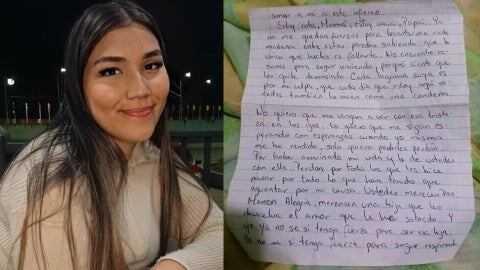 amor a mi a este afierno.
Estoy rota, Mamá, estoy vacía, Papá. Ya
no me quedan fuerzas para levantarme cada
mañana entre estas paredes sabiendo que lo
único que hecho es fallarte. No encuentro ra
zones para seguir viviendo, porque siento que
los quite demasiado. Cada lagrima suya es
por mi culpa, que cada día que estoy aquí us
tedes tambien la viven como una condena.
No quiero que me vengan a ver con esa triste
za en los ojos. No quiero que me sigan es
perando con esperanzas cuando yo misma
me he rendido, solo quiero pedirles perdón.
Por haber arruinado mi vida y la de ustedes
con ella. Perdon por todo lo que les hice
pasar por todo lo que han tenido que
aguantar por mi causa. Ustedes merecen Paz,
Merecen Alegria, merecen una hija que les
devuelva el amor que le ha sobrado... Y
yo ya no se si tenga fuerza para ser esa hija.
Ya no se si tenga fuerza para seguir respirando